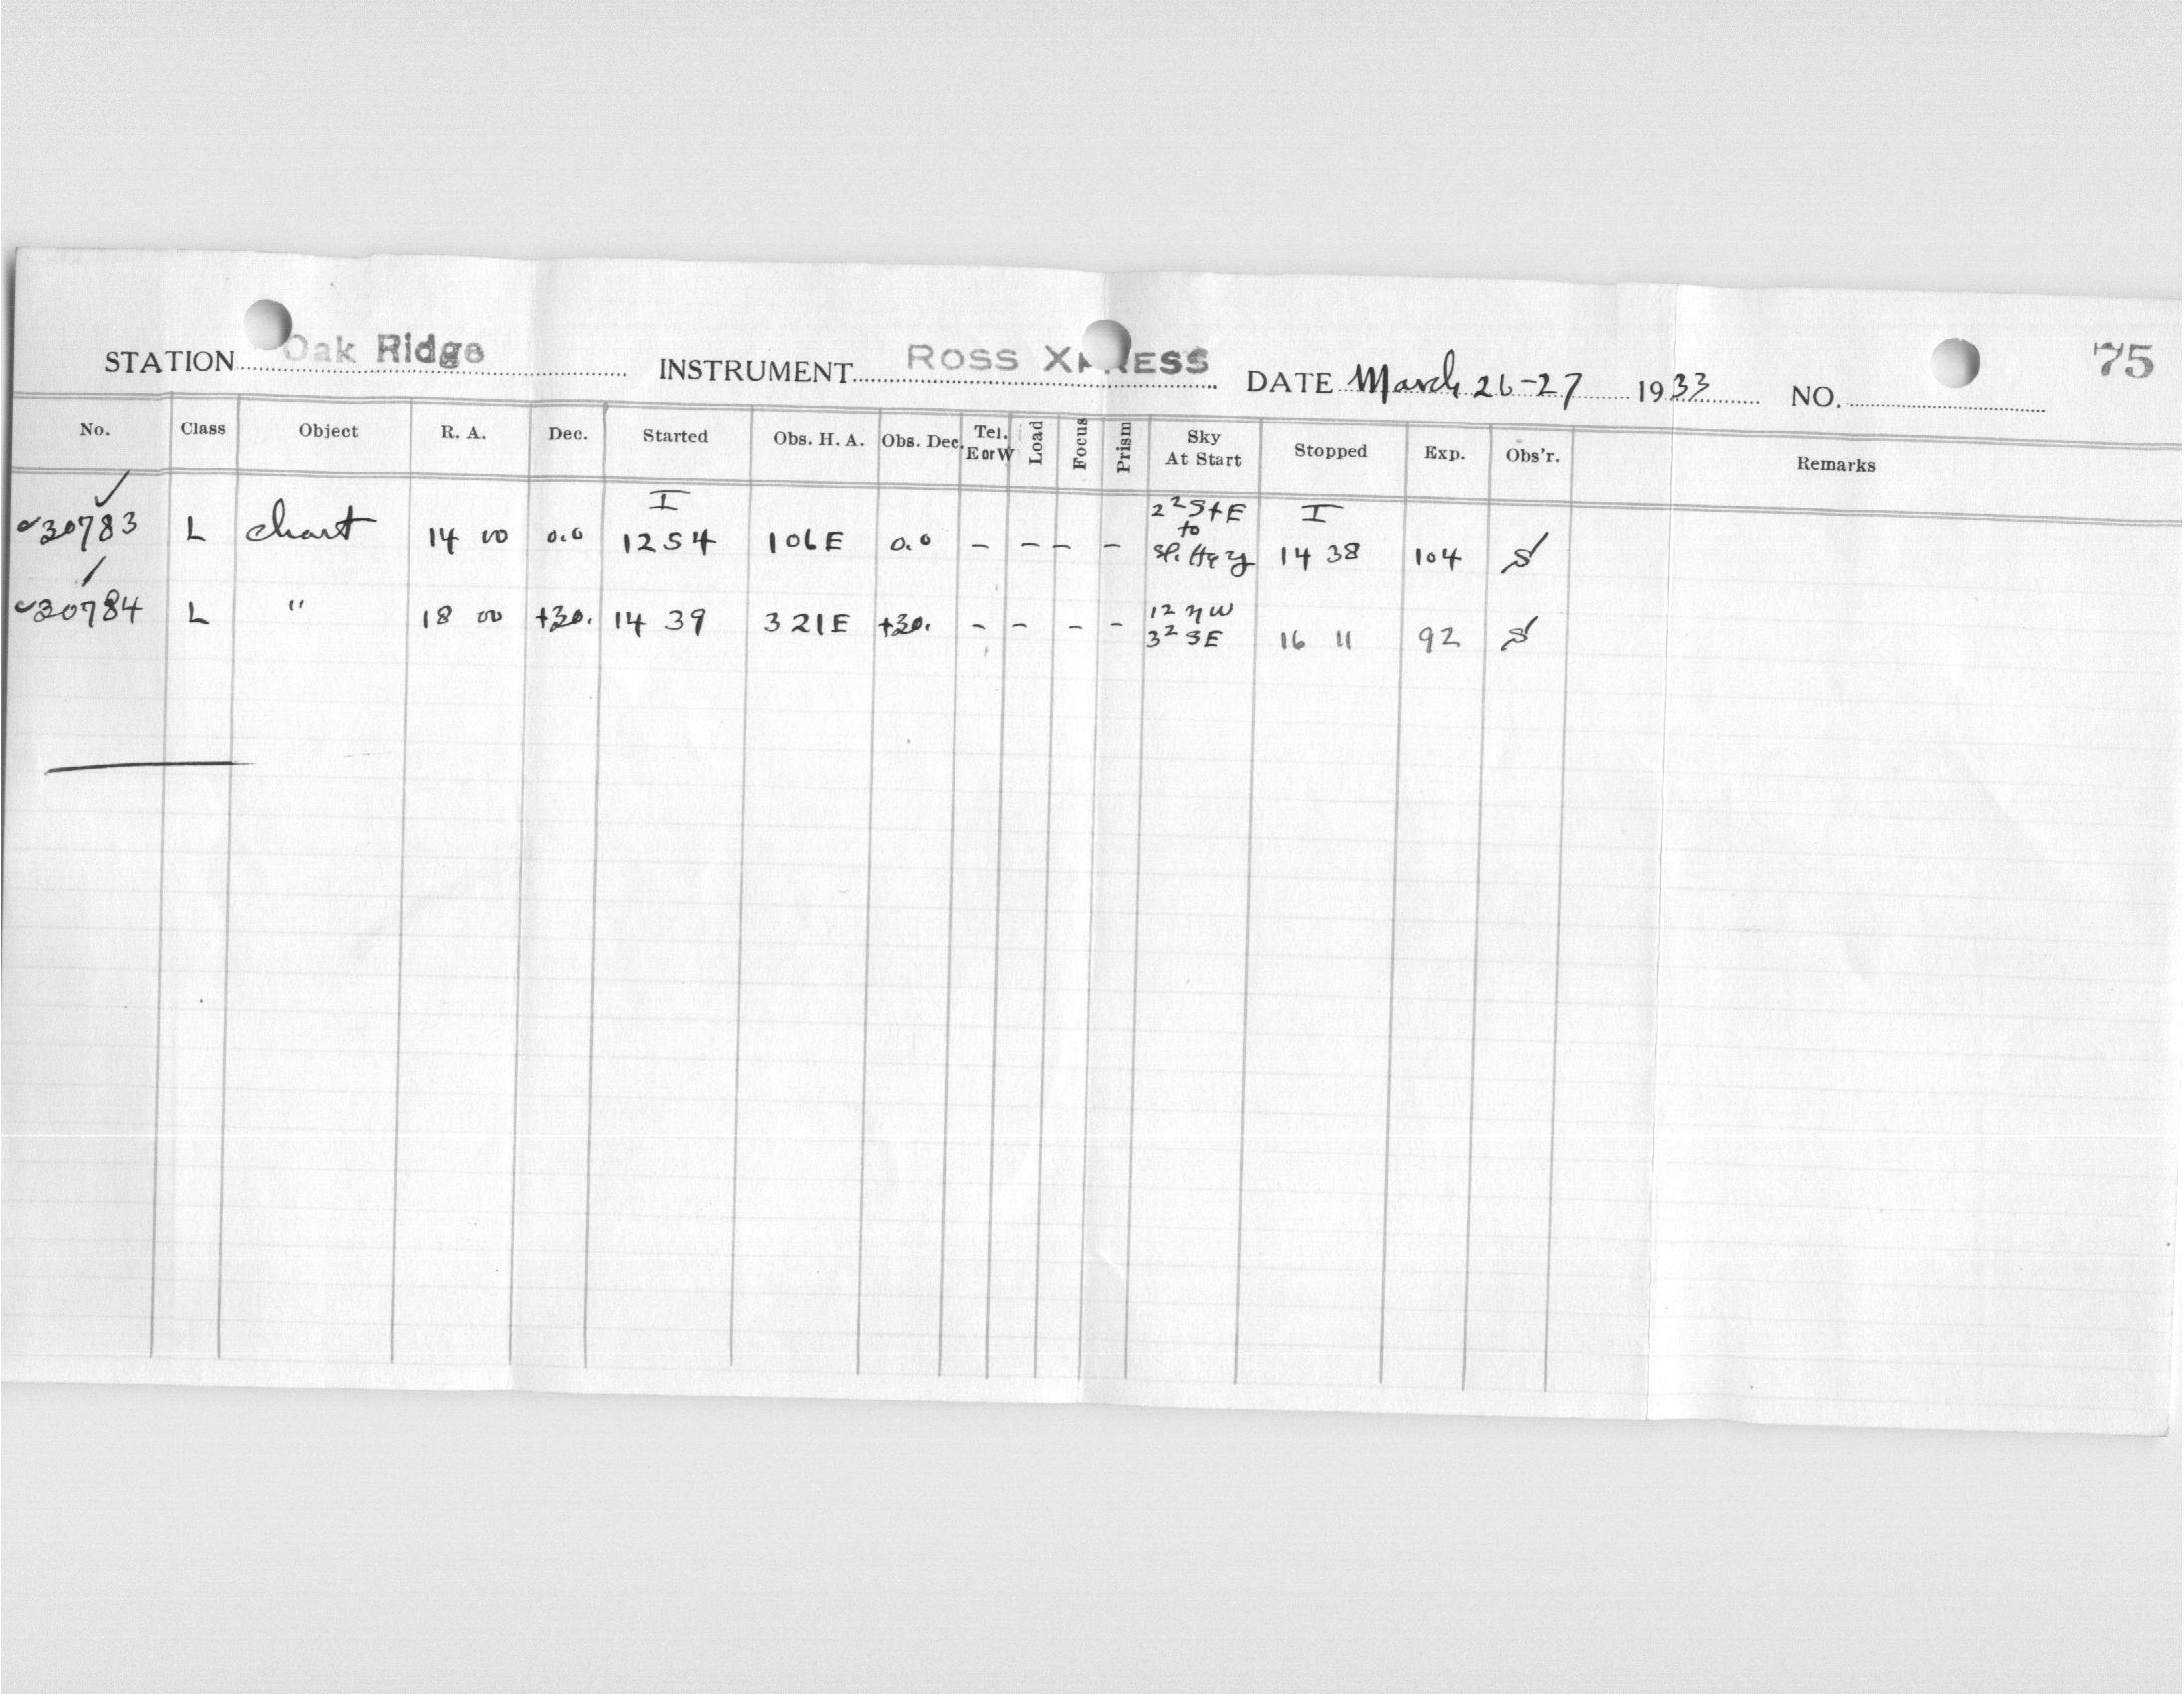 STATION Oak Ridge INSTRUMENT ROSS XPRESS DATE March 26-27 1933 NO. 75
No. Class Object R. A. Dec. Started Obs. H. A. Obs. Dec. Tel. E or W Load Focus Prism Sky At Start Stopped Exp. Obs'r. Remarks
I 2² S+E I
to
✓30783 L chart 14 00 0.0 12 54 106E 0.0 – – – – sl. Hazy 14 38 104 S
✓30784 L " 18 00 +30. 14 39 321E +30. – – – – 1² NW 3² SE 16 11 92 S